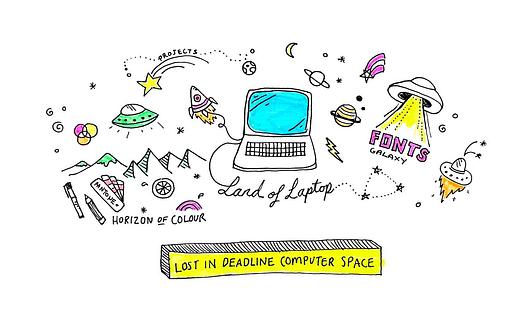 PROJECTS
FONTS
GALAXY
PANTONE
Land of Laptop
HORIZON OF COLOUR
LOST IN DEADLINE COMPUTER SPACE